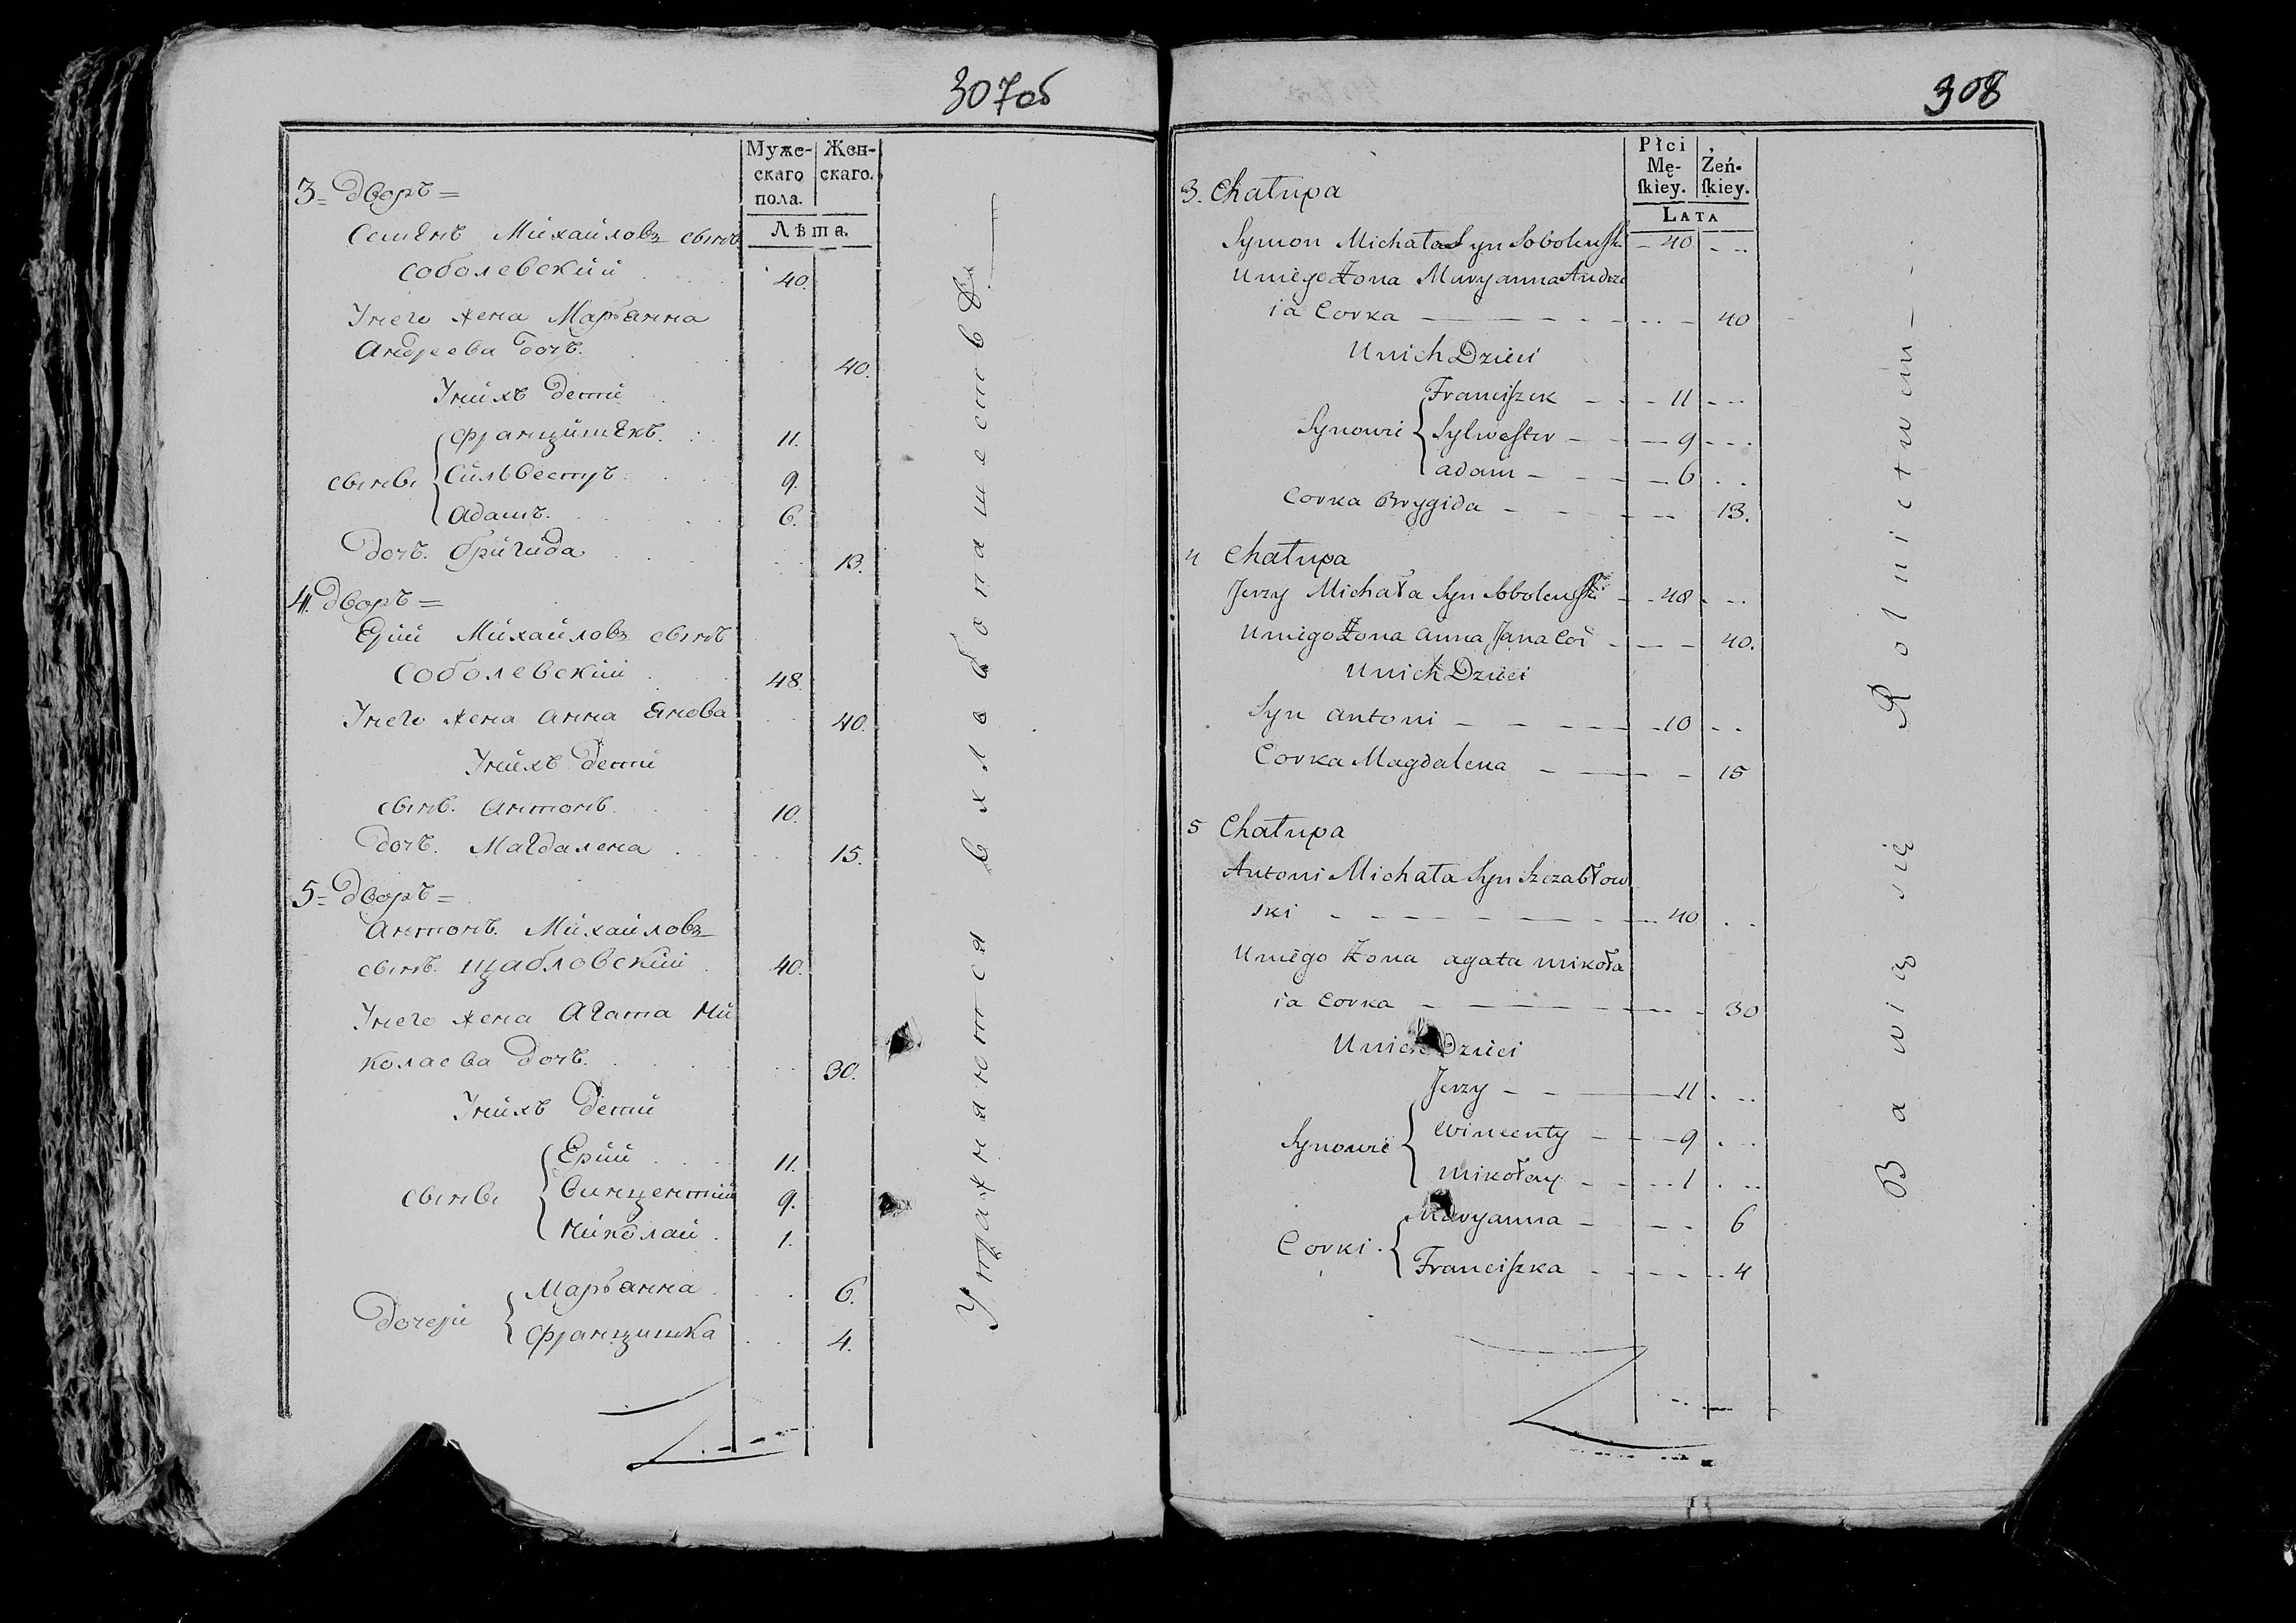 307об
Муже-
скаго
пола.
Жен-
скаго.
Лѣта.
3 = Дворъ =
Семенъ Михайловъ сынъ
Соболевский 40.
У него жена Марьянна
Андреева дочь. 40.
У нихъ дети
Францишекъ. 11.
сыны Сильвестръ 9.
Адамъ. 6.
Дочь. Бригида 13.
4. Дворъ =
Ерий Михайловъ сынъ
Соболевский 48.
У него жена Анна Янова 40.
У нихъ дети
сынъ. Антонъ. 10.
Дочь. Магдалена 15.
5 = Дворъ =
Антонъ. Михайловъ
сынъ. Щабловский 40.
У него жена Агата Ни
колаева дочь. 30.
У нихъ дети
Ерий 11.
сыны Винцентий 9.
Николай 1.
Марьянна 6.
Дочери
Францишка 4.
Упражняются в хлебопашестве
308
Płci
Mę-
ſkiey.
Żeń-
ſkiey.
LATA
3. Chałupa
Symon Michała Syn Sobolewſki 40
U niego Żona Maryanna Andrze
ia Corka 40
U nich Dzieci
Franciſzek 11
Synowie Sylweſter 9
Adam 6
Corka Brygida 13.
4 Chałupa
Jerzy Michała Syn Sobolewſki 48
U niego Żona Anna Jana Cor 40.
U nich Dzieci
Syn Antoni 10
Corka Magdalena 15
5 Chałupa
Antoni Michała Syn Szczabłow
ski 40
U niego Żona Agata Mikoła
ia Corka 30
U nich Dzieci
Jerzy 11
Synowie Wincenty 9
Mikołay 1
Maryanna 6
Corki
Franciſzka 4
Bawią się Rolnictwem